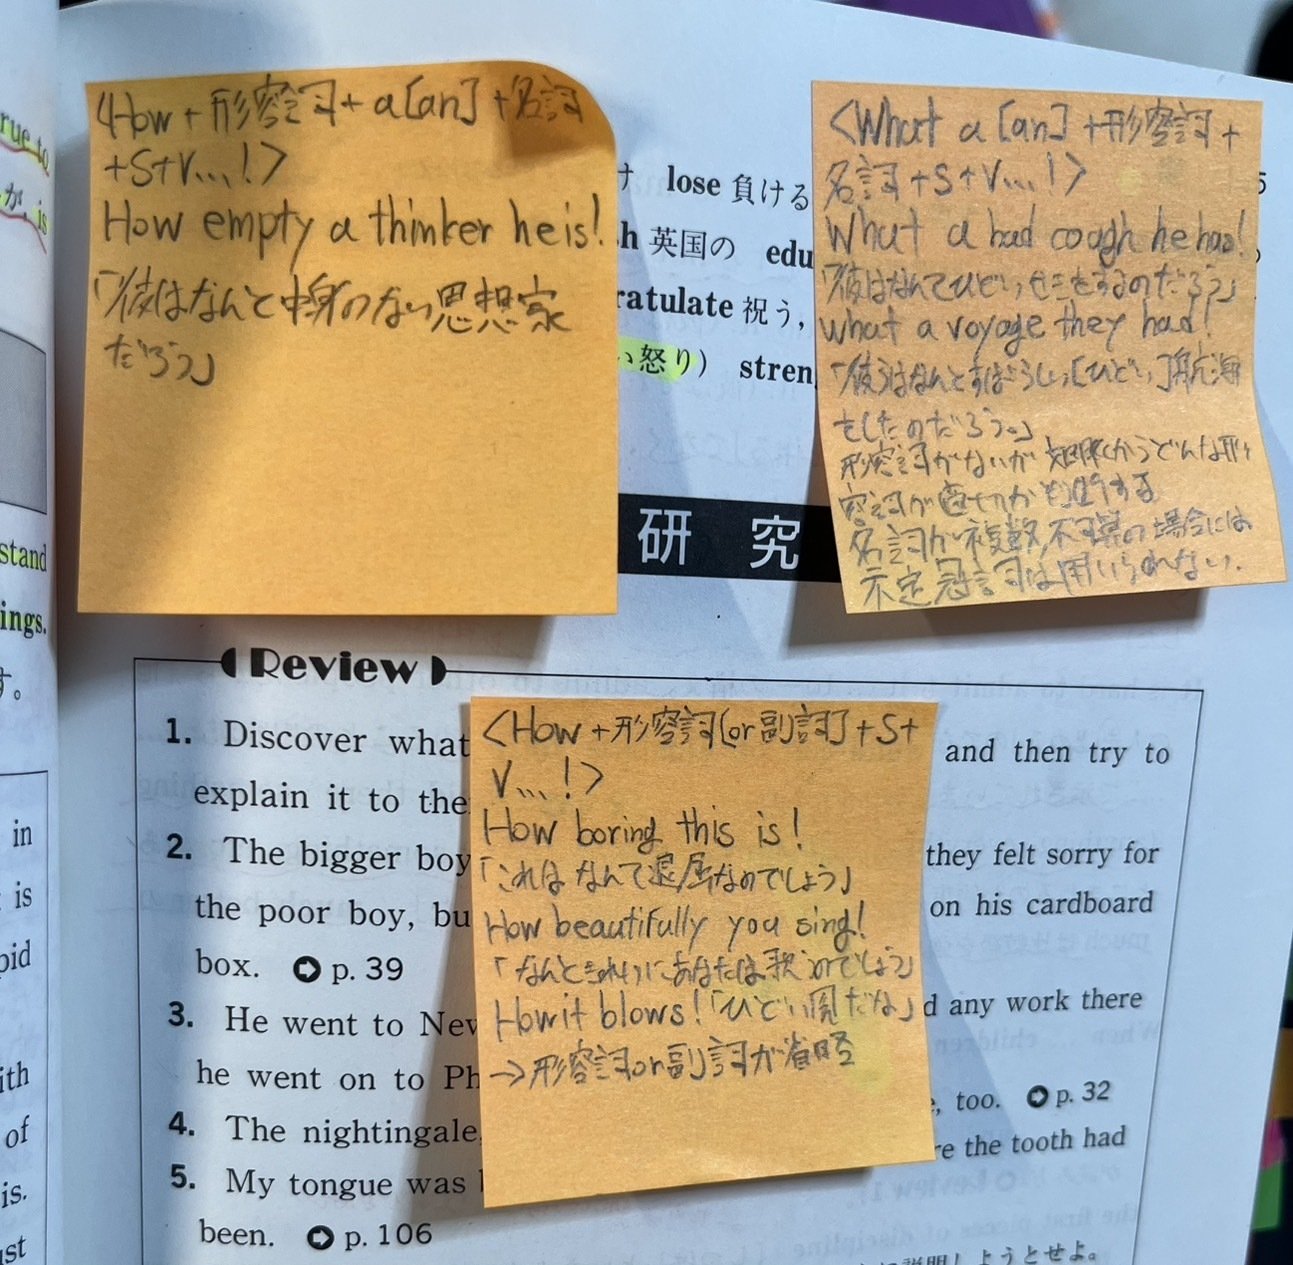 <How + 形容詞 + a [an] + 名詞
+S+V...!>
How empty a thinker he is!
「彼はなんと中身のない思想家
だろう」
<What a [an] +形容詞+
名詞+S+V...!>
What a bad cough he has!
「彼はなんてひどいセキをするのだろう」
What a voyage they had!
「彼らはなんとすばらしい[ひどい]航海
をしたのだろう。」
形容詞がないが 文脈からどんな形
容詞が適切か
名詞が複数,不可算の場合には
不定冠詞は用いられない.
rue to
が, is
け lose 負ける
sh 英国の edu
ratulate 祝う,
い怒り) stren
研究
stand
ings.
す。
Review
<How +形容詞[or副詞] +S+
V...!>
How boring this is!
「これは なんて退屈なのでしょう」
How beautifully you sing!
「なんときれいにあなたは歌うのでしょう」
How it blows!「ひどい風だな」
→形容詞or副詞が省略
1. Discover what and then try to
explain it to the
2. The bigger boy they felt sorry for
the poor boy, bu on his cardboard
box. p. 39
3. He went to New d any work there
he went on to Ph , too. p. 32
4. The nightingale re the tooth had
5. My tongue was
been. p. 106
in
is
pid
ith
of
is.
ust
説明しようとせよ。